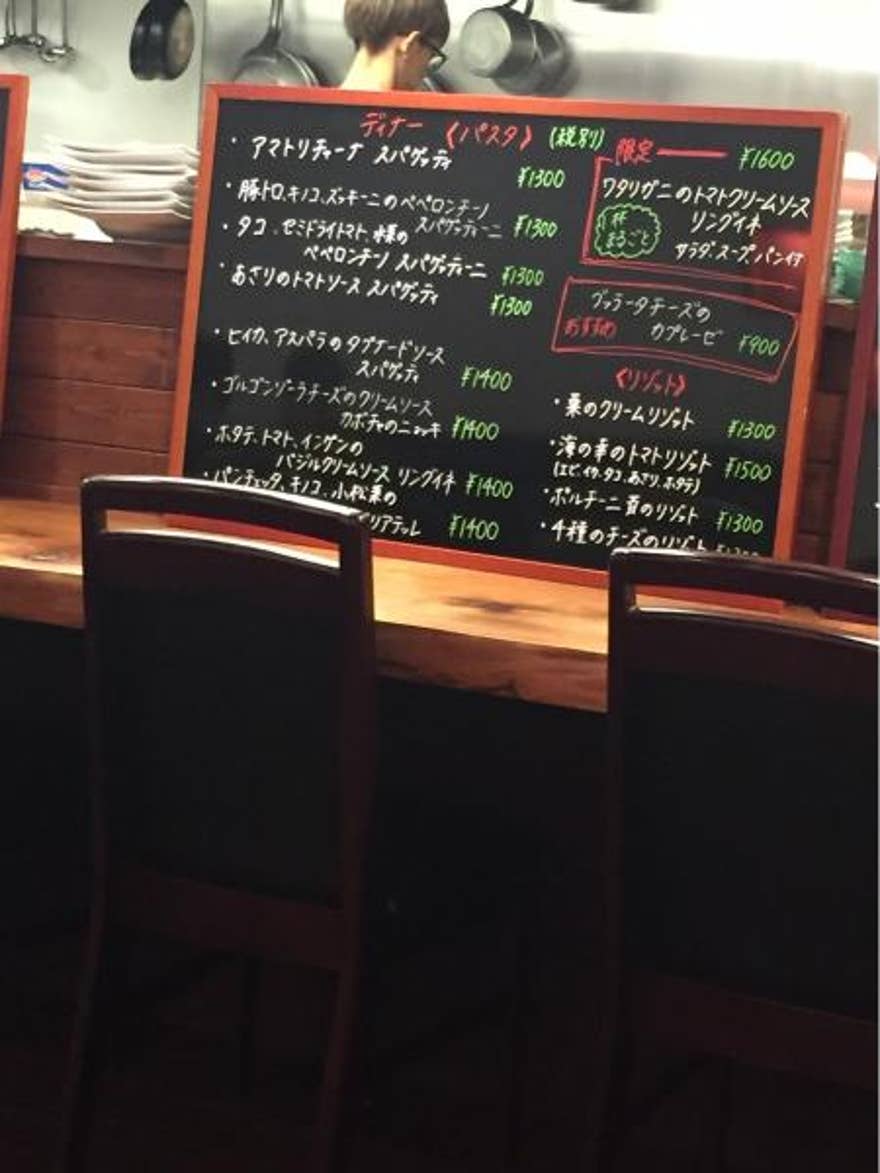 ディナー 《パスタ》 (税別)
・アマトリチャーナ スパゲッティ
¥1300
・豚トロ、キノコ、ズッキーニのペペロンチーノ
スパゲッティーニ ¥1300
・タコ、セミドライトマト、水菜の
ペペロンチーノ スパゲッティーニ ¥1300
・あさりのトマトソース スパゲッティ
¥1300
・ヒイカ、アスパラのタプナードソース
スパゲッティ ¥1400
・ゴルゴンゾーラチーズのクリームソース
カボチャのニョッキ ¥1400
・ホタテ、トマト、インゲンの
バジルクリームソース リングイネ ¥1400
・パンチェッタ、キノコ、小松菜の
リアテッレ ¥1400
限定 ¥1600
ワタリガニのトマトクリームソース
リングイネ
一杯
まるごと
サラダ、スープ、パン付
ブッラータチーズの
おすすめ カプレーゼ ¥900
《リゾット》
・栗のクリームリゾット
¥1300
・海の幸のトマトリゾット
(エビ、イカ、タコ、あさり、ホタテ) ¥1500
・ポルチーニ茸のリゾット ¥1300
・4種のチーズのリゾット